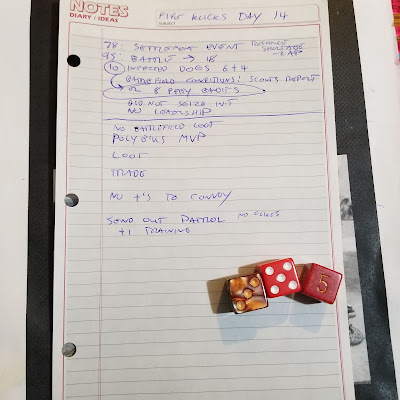 NOTES
DIARY / IDEAS
SUBJECT
FIVE KLICKS DAY 14
78 SETTLEMENT EVENT RESOURCE SHORTAGE
-2 AP
95 BATTLE → 18
10 INFECTED DOGS 6+4
BATTLEFIELD CONDITIONS! SCOUTS REPORT
OR 8 PETTY BANDITS
DID NOT SEIZE INIT
NO LEADERSHIP
NO BATTLEFIELD LOOT
POLYBIUS MVP
LOOT
TRADE
NO +'S TO CONVOY
SEND OUT PATROL NO CLUES
+1 TRAINING
5